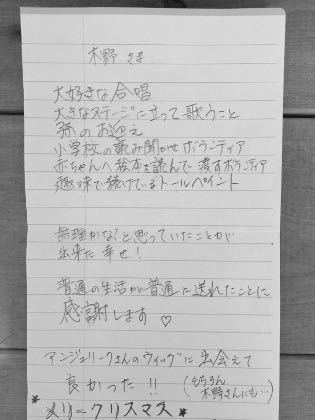 木野 さま
大好きな合唱
大きなステージに立って歌うこと
孫のお迎え
小学校の読み聞かせボランティア
赤ちゃんへ絵本を読んで渡すボランティア
趣味で続けているトールペイント
無理かな?と思っていたことが
出来た幸せ!
普通の生活が普通に送れたことに
感謝します ♡
アンジェリークさんのウィッグに出会えて
良かった!!
(もちろん
木野さんにも…)
*メリークリスマス*